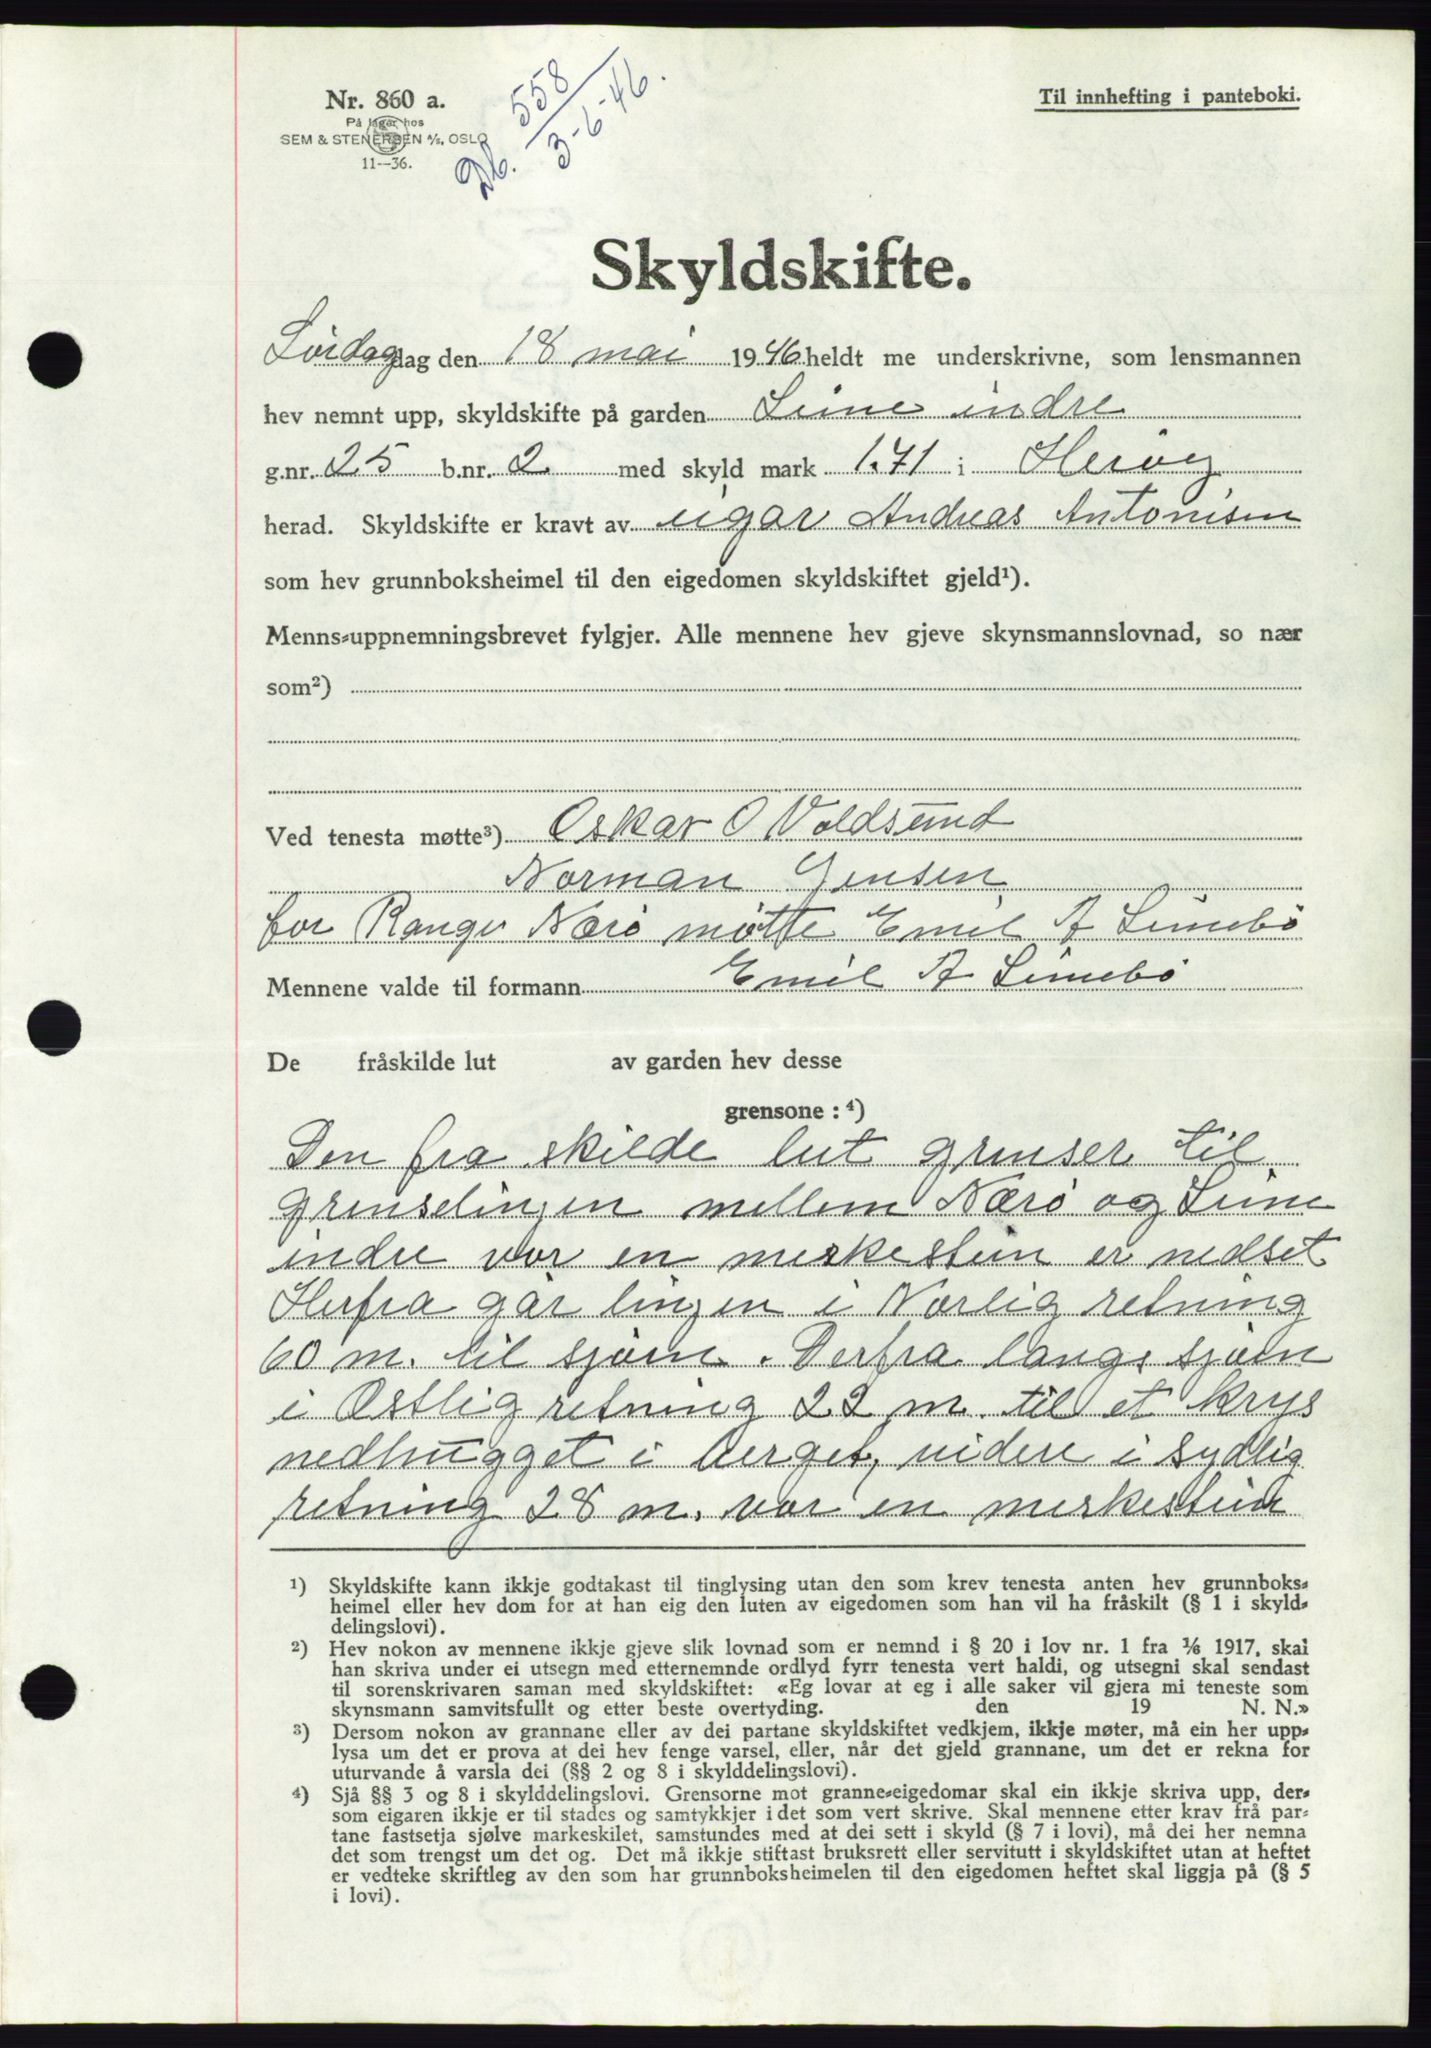 Nr. 860 a.
På lager hos
SEM & STENERSEN A/S, OSLO
11—36.
Db. 558/3-6-46.
Til innhefting i panteboki.
Skyldskifte.
Lørdag dag den 18 mai 1946 heldt me underskrivne, som lensmannen
hev nemnt upp, skyldskifte på garden Leine indre
g.nr. 25 b.nr. 2 med skyld mark 1.71 i Herøy
herad. Skyldskifte er kravt av eigar Andreas Antonisen
som hev grunnboksheimel til den eigedomen skyldskiftet gjeld¹).
Menns-uppnemningsbrevet fylgjer. Alle mennene hev gjeve skynsmannslovnad, so nær
som²)
Ved tenesta møtte³) Oskar O Voldsund
Norman Jensen
for Rangv Nærö møtte Emil A Leinebö
Mennene valde til formann Emil A Leinebö
De fråskilde lut av garden hev desse
grensone : ⁴)
Den fra skilde lut grenser til
grenselinjen mellem Nærö og Leine
indre vor en merkestein er nedset
Herfra går linjen i Nørlig retning
60 m. til sjøen. Derfra langs sjøen
i Østlig retning 22 m. til et krys
nedhugget i berget, videre i sydlig
retning 28 m. vor en merkestein
¹) Skyldskifte kann ikkje godtakast til tinglysing utan den som krev tenesta anten hev grunnboks-
heimel eller hev dom for at han eig den luten av eigedomen som han vil ha fråskilt (§ 1 i skyld-
delingslovi).
²) Hev nokon av mennene ikkje gjeve slik lovnad som er nemnd i § 20 i lov nr. 1 fra 1/6 1917, skal
han skriva under ei utsegn med etternemnde ordlyd fyrr tenesta vert haldi, og utsegni skal sendast
til sorenskrivaren saman med skyldskiftet: «Eg lovar at eg i alle saker vil gjera mi teneste som
skynsmann samvitsfullt og etter beste overtyding. den 19 N. N.»
³) Dersom nokon av grannane eller av dei partane skyldskiftet vedkjem, ikkje møter, må ein her upp-
lysa um det er prova at dei hev fenge varsel, eller, når det gjeld grannane, um det er rekna for
uturvande å varsla dei (§§ 2 og 8 i skylddelingslovi).
⁴) Sjå §§ 3 og 8 i skylddelingslovi. Grensorne mot granne-eigedomar skal ein ikkje skriva upp, der-
som eigaren ikkje er til stades og samtykkjer i det som vert skrive. Skal mennene etter krav frå par-
tane fastsetja sjølve markeskilet, samstundes med at dei sett i skyld (§ 7 i lovi), må dei her nemna
det som trengst um det og. Det må ikkje stiftast bruksrett eller servitutt i skyldskiftet utan at heftet
er vedteke skriftleg av den som har grunnboksheimelen til den eigedomen heftet skal liggja på (§ 5
i lovi).